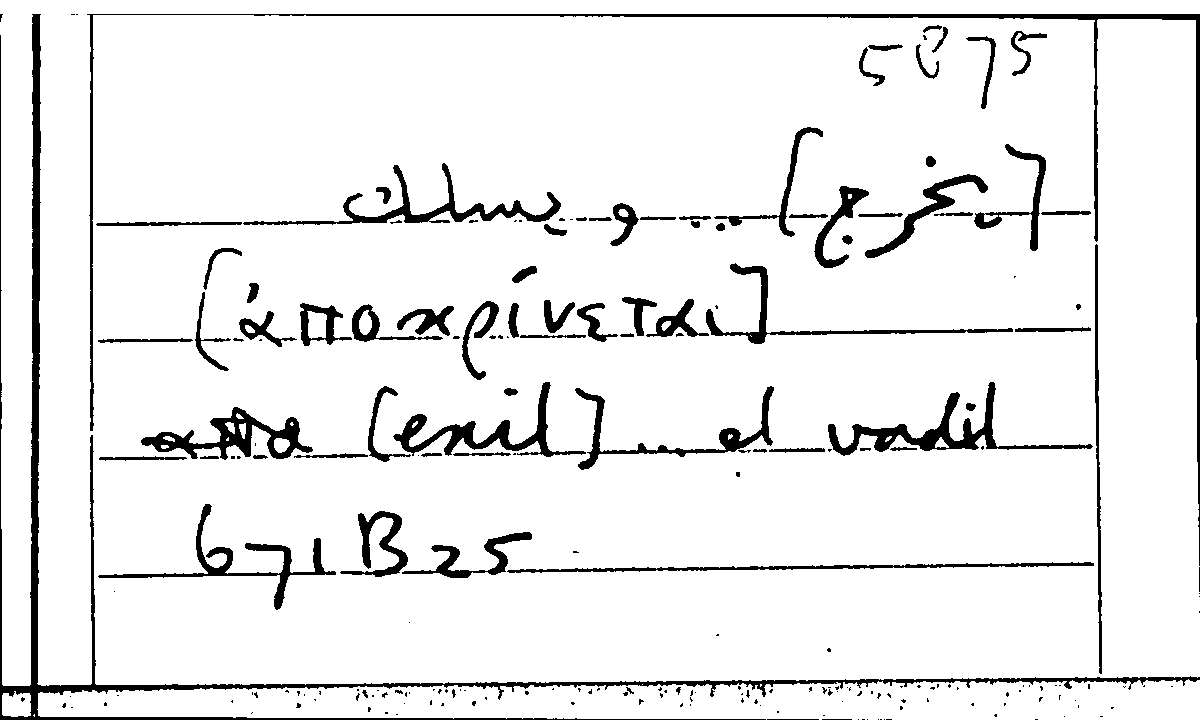 5875
[يخرج] ... و يسلك
[ἀποκρίνεται]
[exit] ... et vadit
671B25